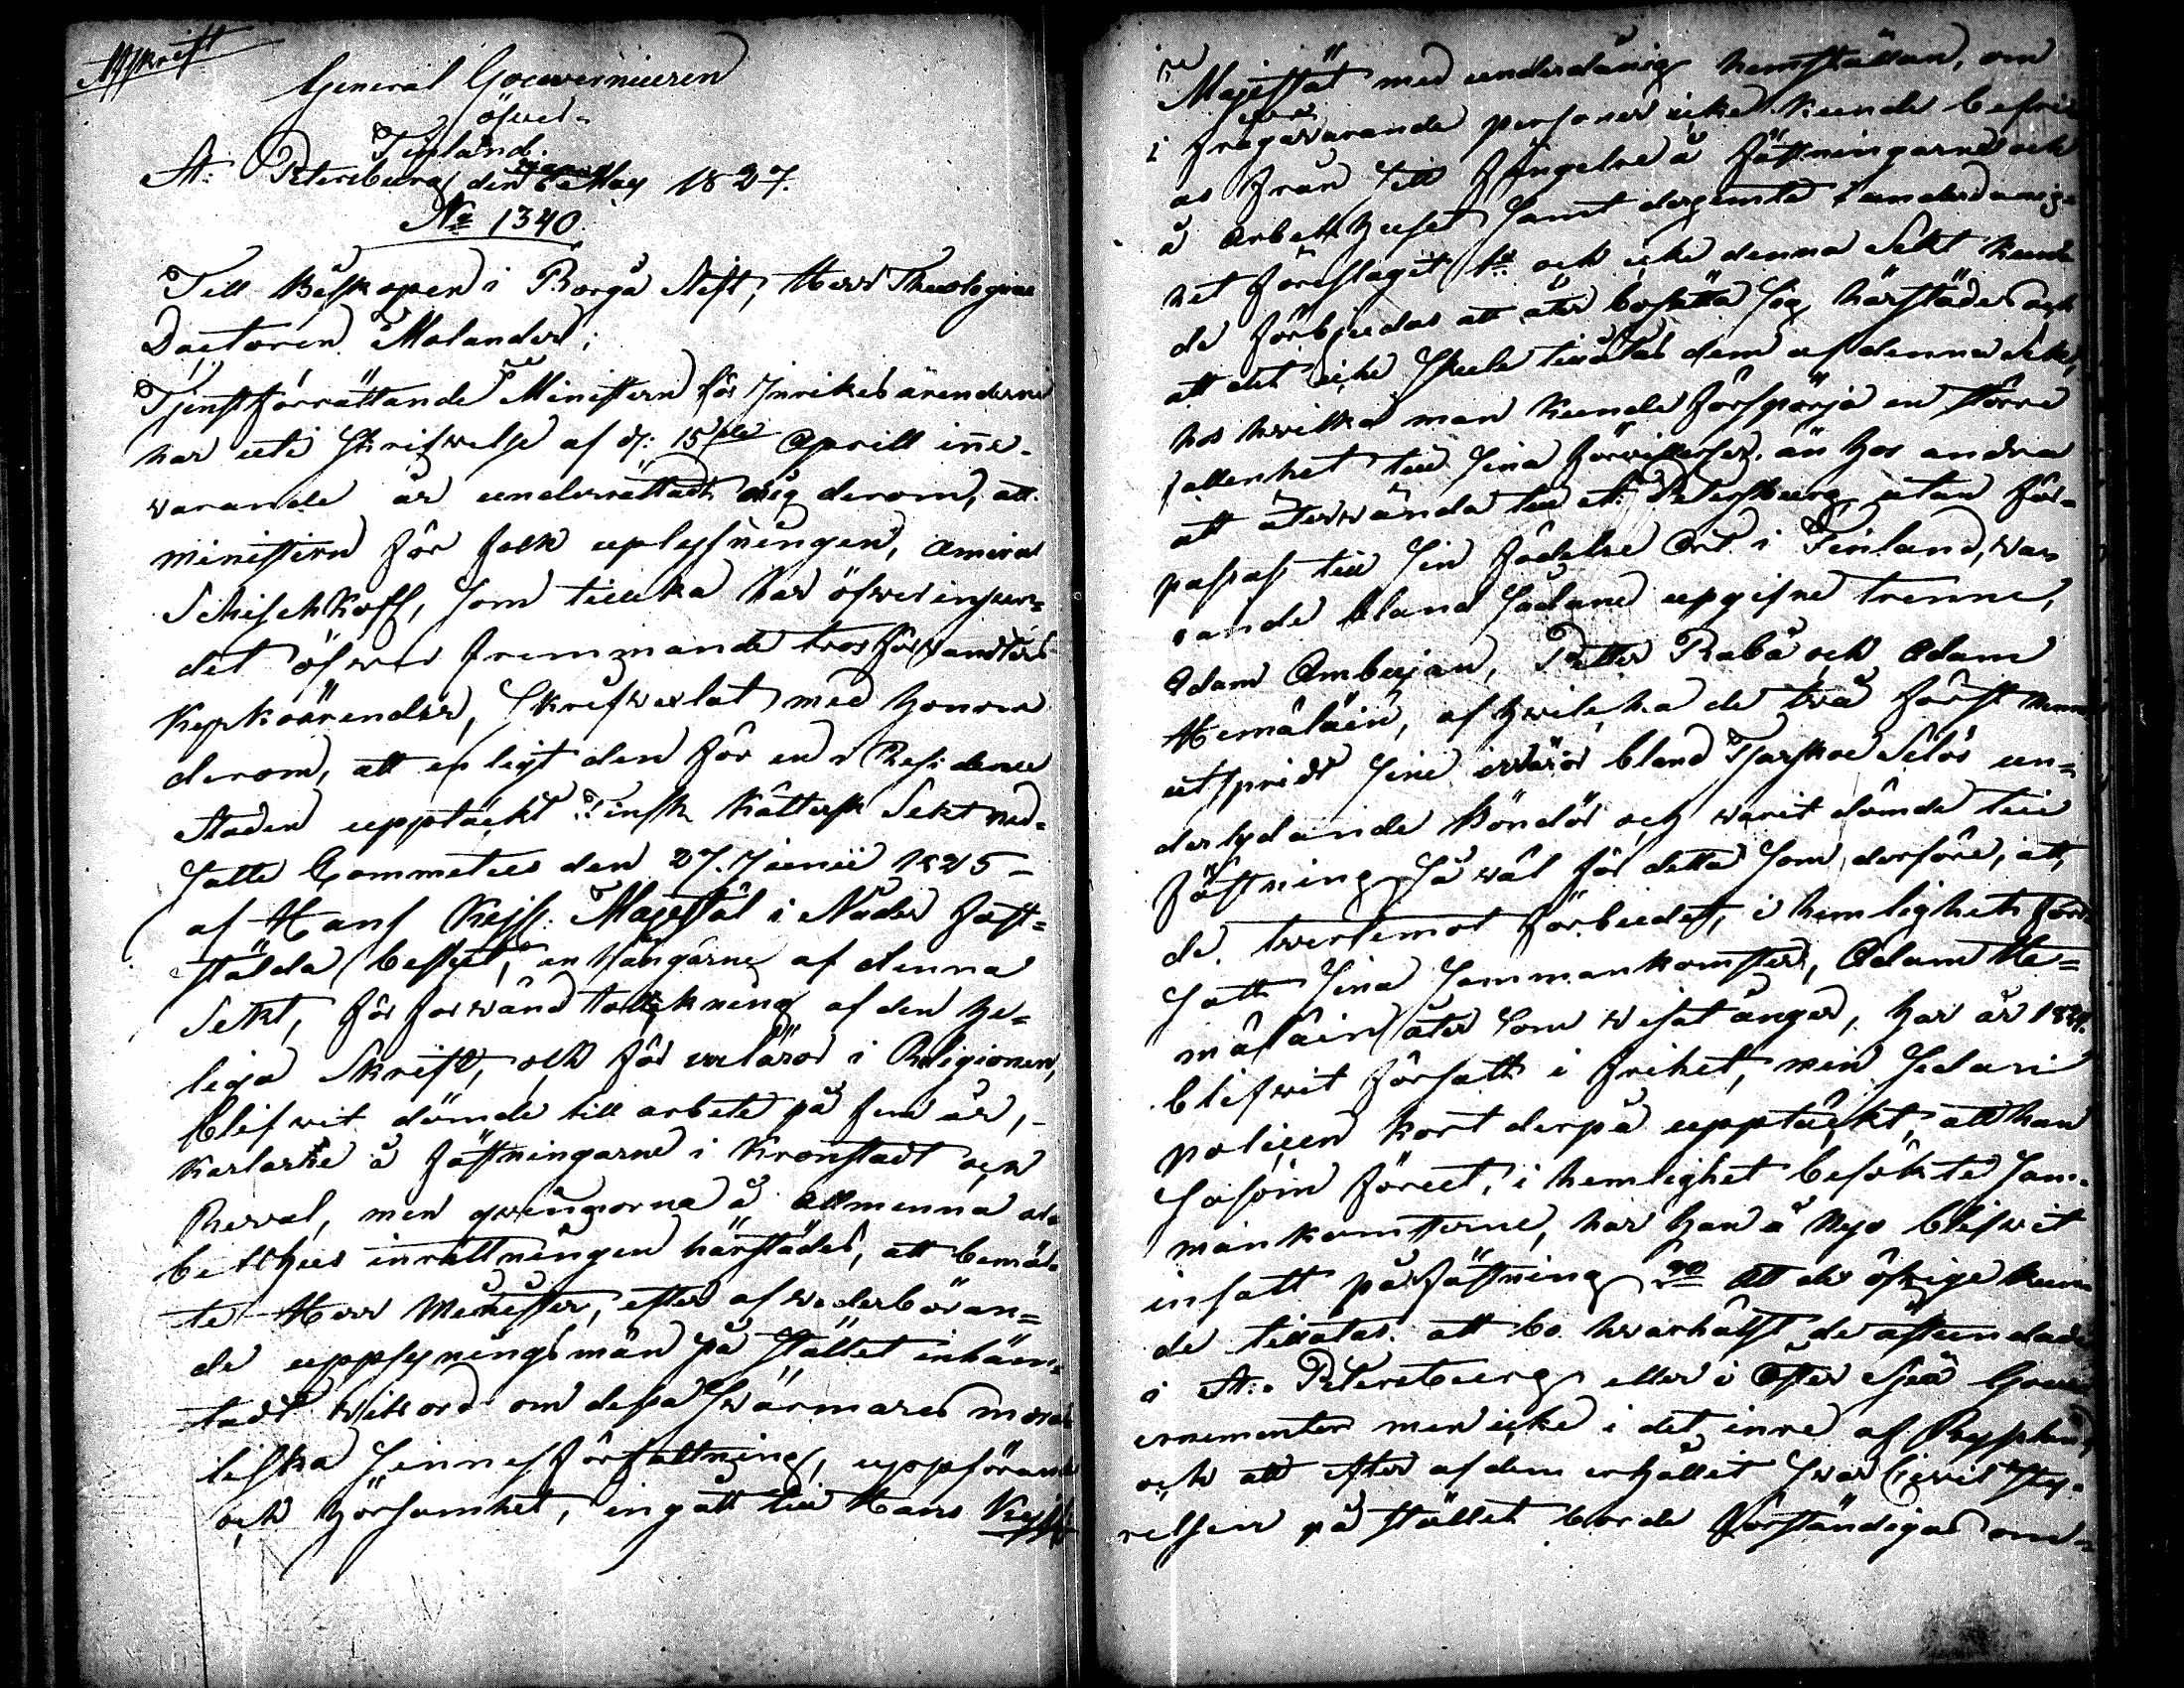 Afskrift
General Gouverneuren
öfver
Finland.
St: Petersburg den May 1827.
No 1340.
Till Biskopen i Borgå Stift, Herr Theologiae
Doctoren Molander;
Tjenstförrättande Ministern för Inrikes ärenderne
har uti Skrifwelse af d: 15de Aprill inne-
warande år underrättadt mig derom, att
ministern för folk uplysningen, Amiral
Schischkoff, som tillika har öfverinseen-
det öfver fremmande trosförwandters
Kyrkoärender, Skrifwexlat med honom
derom, att enligt den för en i Residence
staden upptäckt Finsk kättersk Sekt ned-
satte Committeen den 27. Junii 1825 –
af Hans Kejs. Majestät i Nåder fast-
stälda beslut, anhängarne af denna
Sekt, för forwänd tolckning af den he-
liga Skrift, och för irrläror i Religionen,
blifvit dömde till arbete på fem år, –
Karlarne å fästningarne i Kronstadt och
Reval, men qwinnorna å Allmenna ar-
betshus inrättningen härstädes, att bemäl-
te Herr Minister, efter af wederböran-
de uppsyningsmän på stället inhäm-
tadt witsord om dessa Swärmares mora-
liska Sinnesförfattning, uppförande
och hörsamhet, ingått till Hans Kejs.
Majestät med underdånig hemställan, om
i frågavarande personer icke kunde befri-
as från till fängelse å fästningarne och
å arbetshuset samt dergemte i underdånig-
het föreslagit 1o och icke denna Sekt kun-
de förbjudas att åter bosätta sig härstädes och
att det icke Skulle tillåtas dem af denna Sekt,
hos hwilka man kunde försporja en större
fallenhet till sina förvillelser, än hos andra
att återwända till St: Petersburg, utan för-
passas till sin födelse Ort i Finland, wa-
rande bland sådane uppgifne trenne,
Adam Ambujan, Petter Rabå och Adam
Hemäläin, af hwilcka de två först nemnde
utspridt sine irläror bland Tsarskoe Selos un-
derlydande bönder och warit dömde till
fästning så wäl för detta som derföre, att
de twertemot förbudet, i hemlighet fort-
satt sina sammankomster, Adam He-
mäläin åter som wisat ånger, har år
blifwit försatt i frihet, men sedan
policen kort derpå upptäckt, att han
såsom förut, i hemlighet besökte sam-
mankomsterne, har han å nyo blifwit
insatt på fästning 2o Att de öfrige kun-
de tillåtas att bo hwarhälst de åstundade
i St: Petersburg eller i Öster Sjö Gouv-
ernementer men icke i det inre af Ryssland,
och att efter af dem erhållit swar Civil Sty-
relsen på stället borde förständigas om